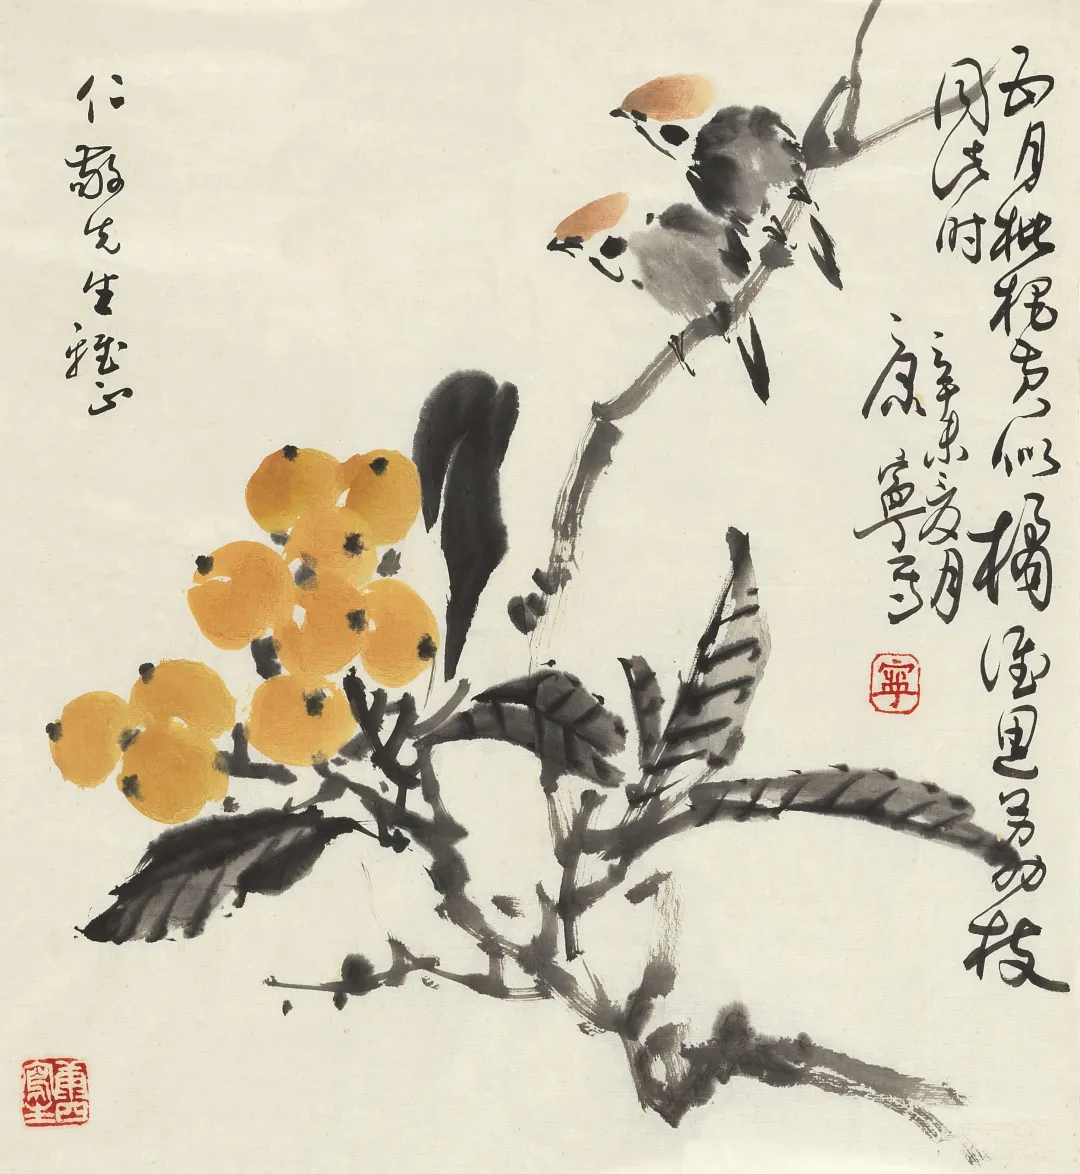 五月枇杷黄似橘谁思荔枝
同此时
辛未夏月
康寧写
寧
仁敬先生雅正